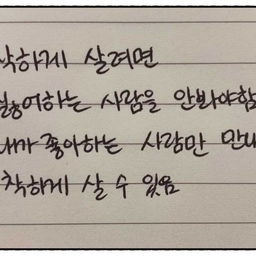 착하게 살려면
싫어하는 사람을 안봐야함
내가 좋아하는 사람만 만나
착하게 살 수 있음